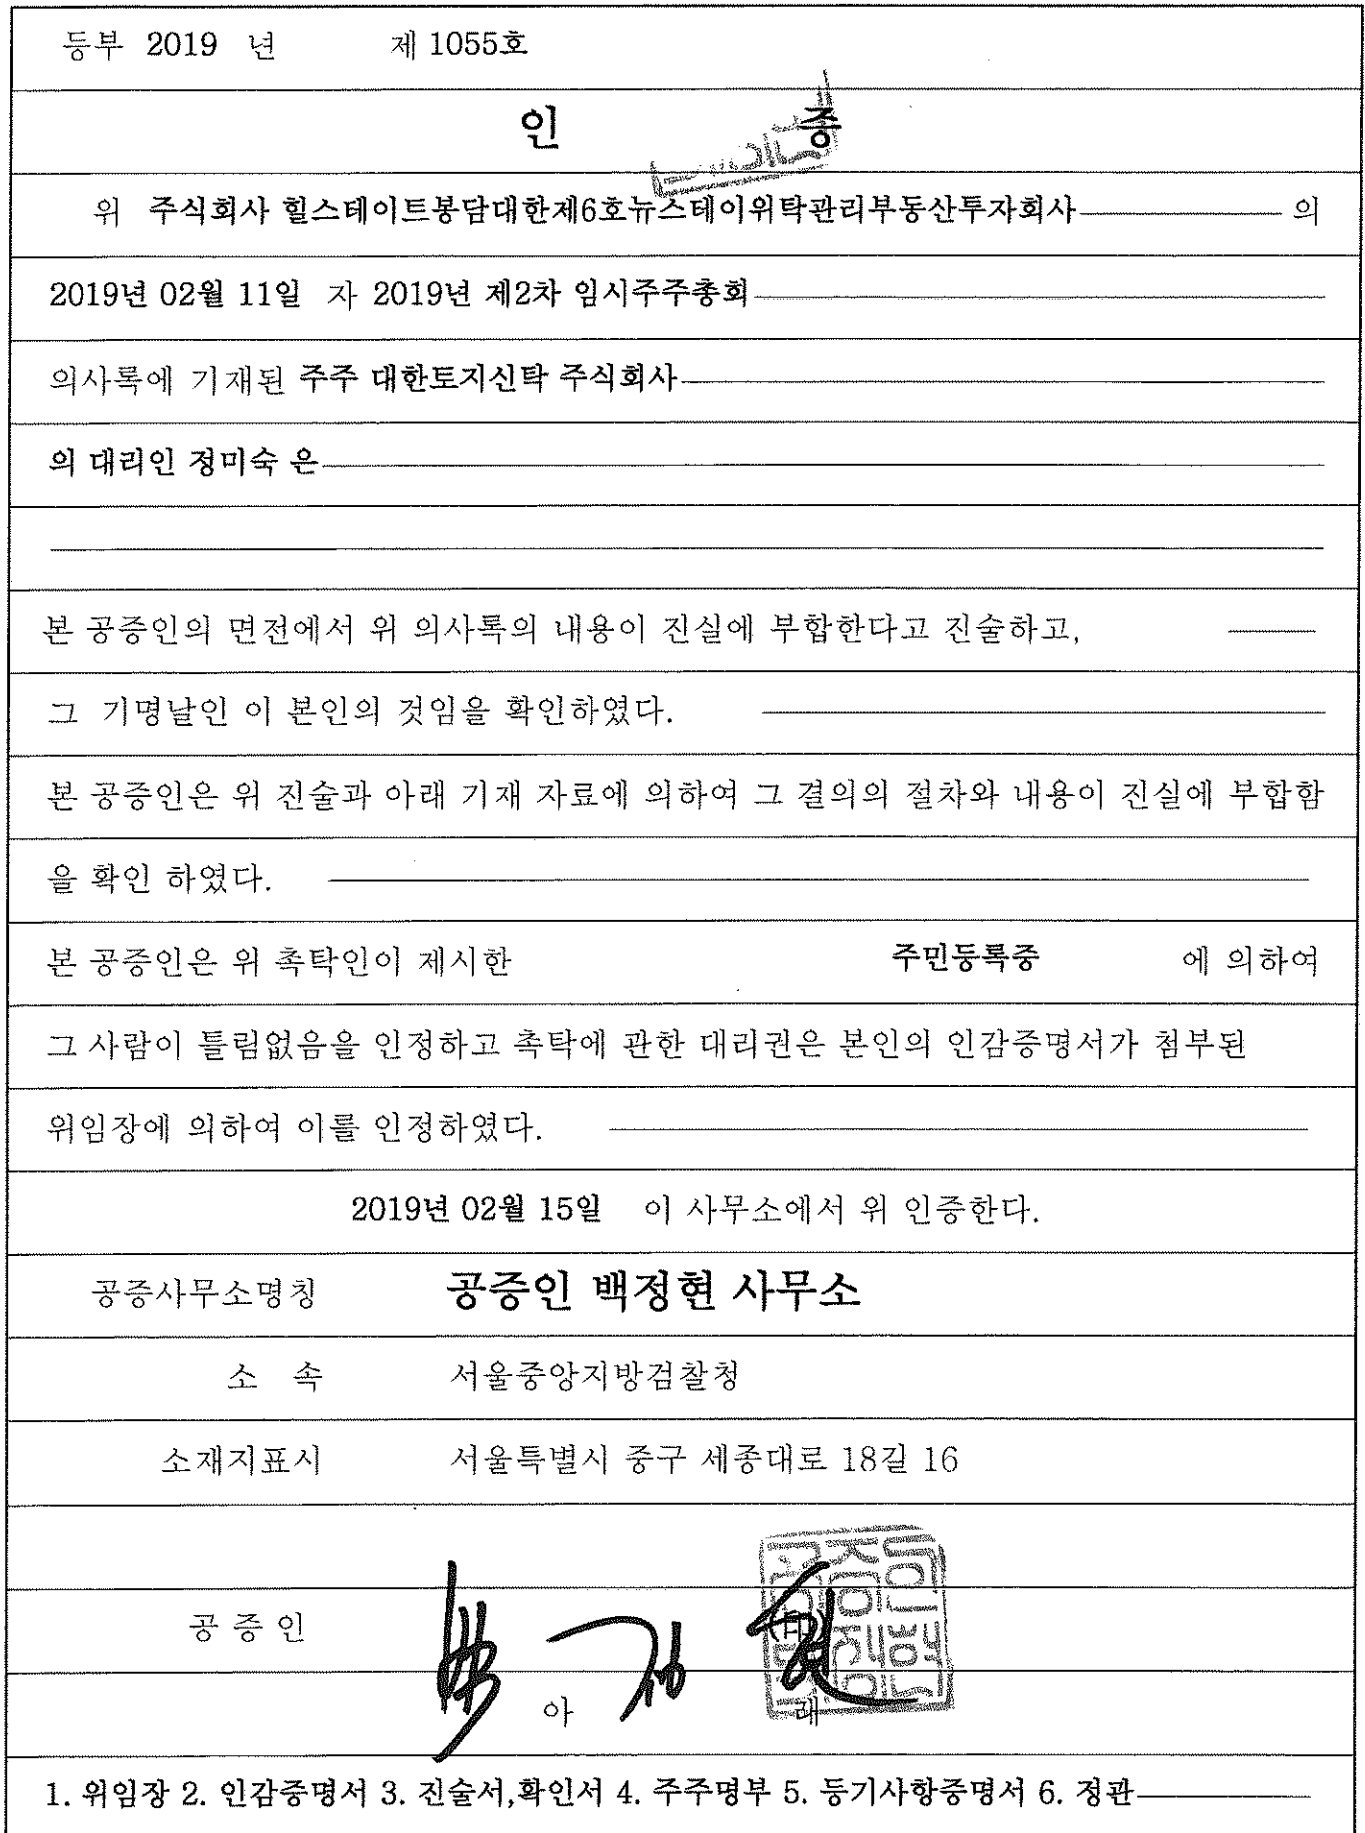 등부 2019 년 제 1055호
인 증
위 주식회사 힐스테이트봉담대한제6호뉴스테이위탁관리부동산투자회사 의
2019년 02월 11일 자 2019년 제2차 임시주주총회
의사록에 기재된 주주 대한토지신탁 주식회사
의 대리인 정미숙 은
본 공증인의 면전에서 위 의사록의 내용이 진실에 부합한다고 진술하고,
그 기명날인 이 본인의 것임을 확인하였다.
본 공증인은 위 진술과 아래 기재 자료에 의하여 그 결의의 절차와 내용이 진실에 부합함
을 확인 하였다.
본 공증인은 위 촉탁인이 제시한 주민등록증 에 의하여
그 사람이 틀림없음을 인정하고 촉탁에 관한 대리권은 본인의 인감증명서가 첨부된
위임장에 의하여 이를 인정하였다.
2019년 02월 15일 이 사무소에서 위 인증한다.
공증사무소명칭 공증인 백정현 사무소
소 속 서울중앙지방검찰청
소재지표시 서울특별시 중구 세종대로 18길 16
공 증 인 (印)
아 래
1. 위임장 2. 인감증명서 3. 진술서,확인서 4. 주주명부 5. 등기사항증명서 6. 정관